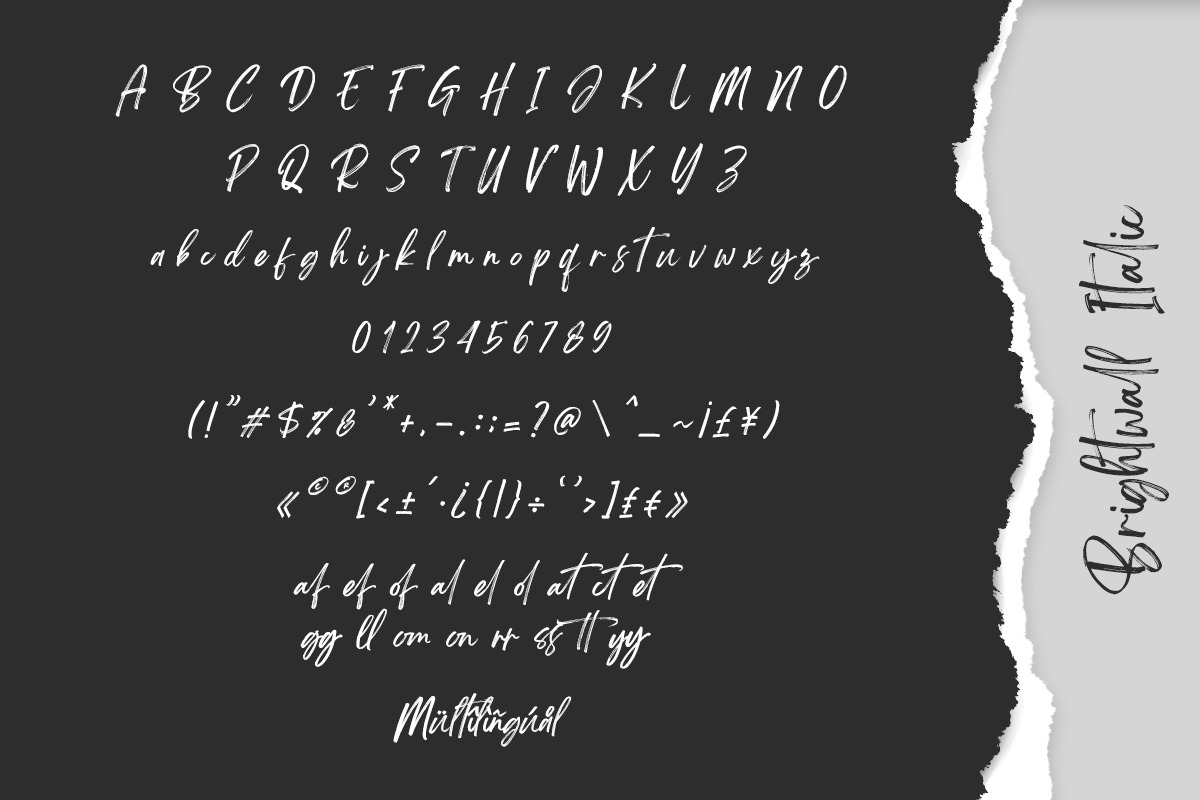 A B C D E F G H I J K L M N O
P Q R S T U V W X Y Z
a b c d e f g h i j k l m n o p q r s t u v w x y z
0 1 2 3 4 5 6 7 8 9
( ! " # $ % & ' * + , - . : ; = ? @ \ ^ _ ~ ¡ £ ¥ )
« © ® [ < ± ´ · ¿ { | } ÷ ‘ ’ > ] £ € »
af ef of al el ol at ct et
gg ll om on rr ss tt yy
Mültîlîñgúål
Brightwall Italic